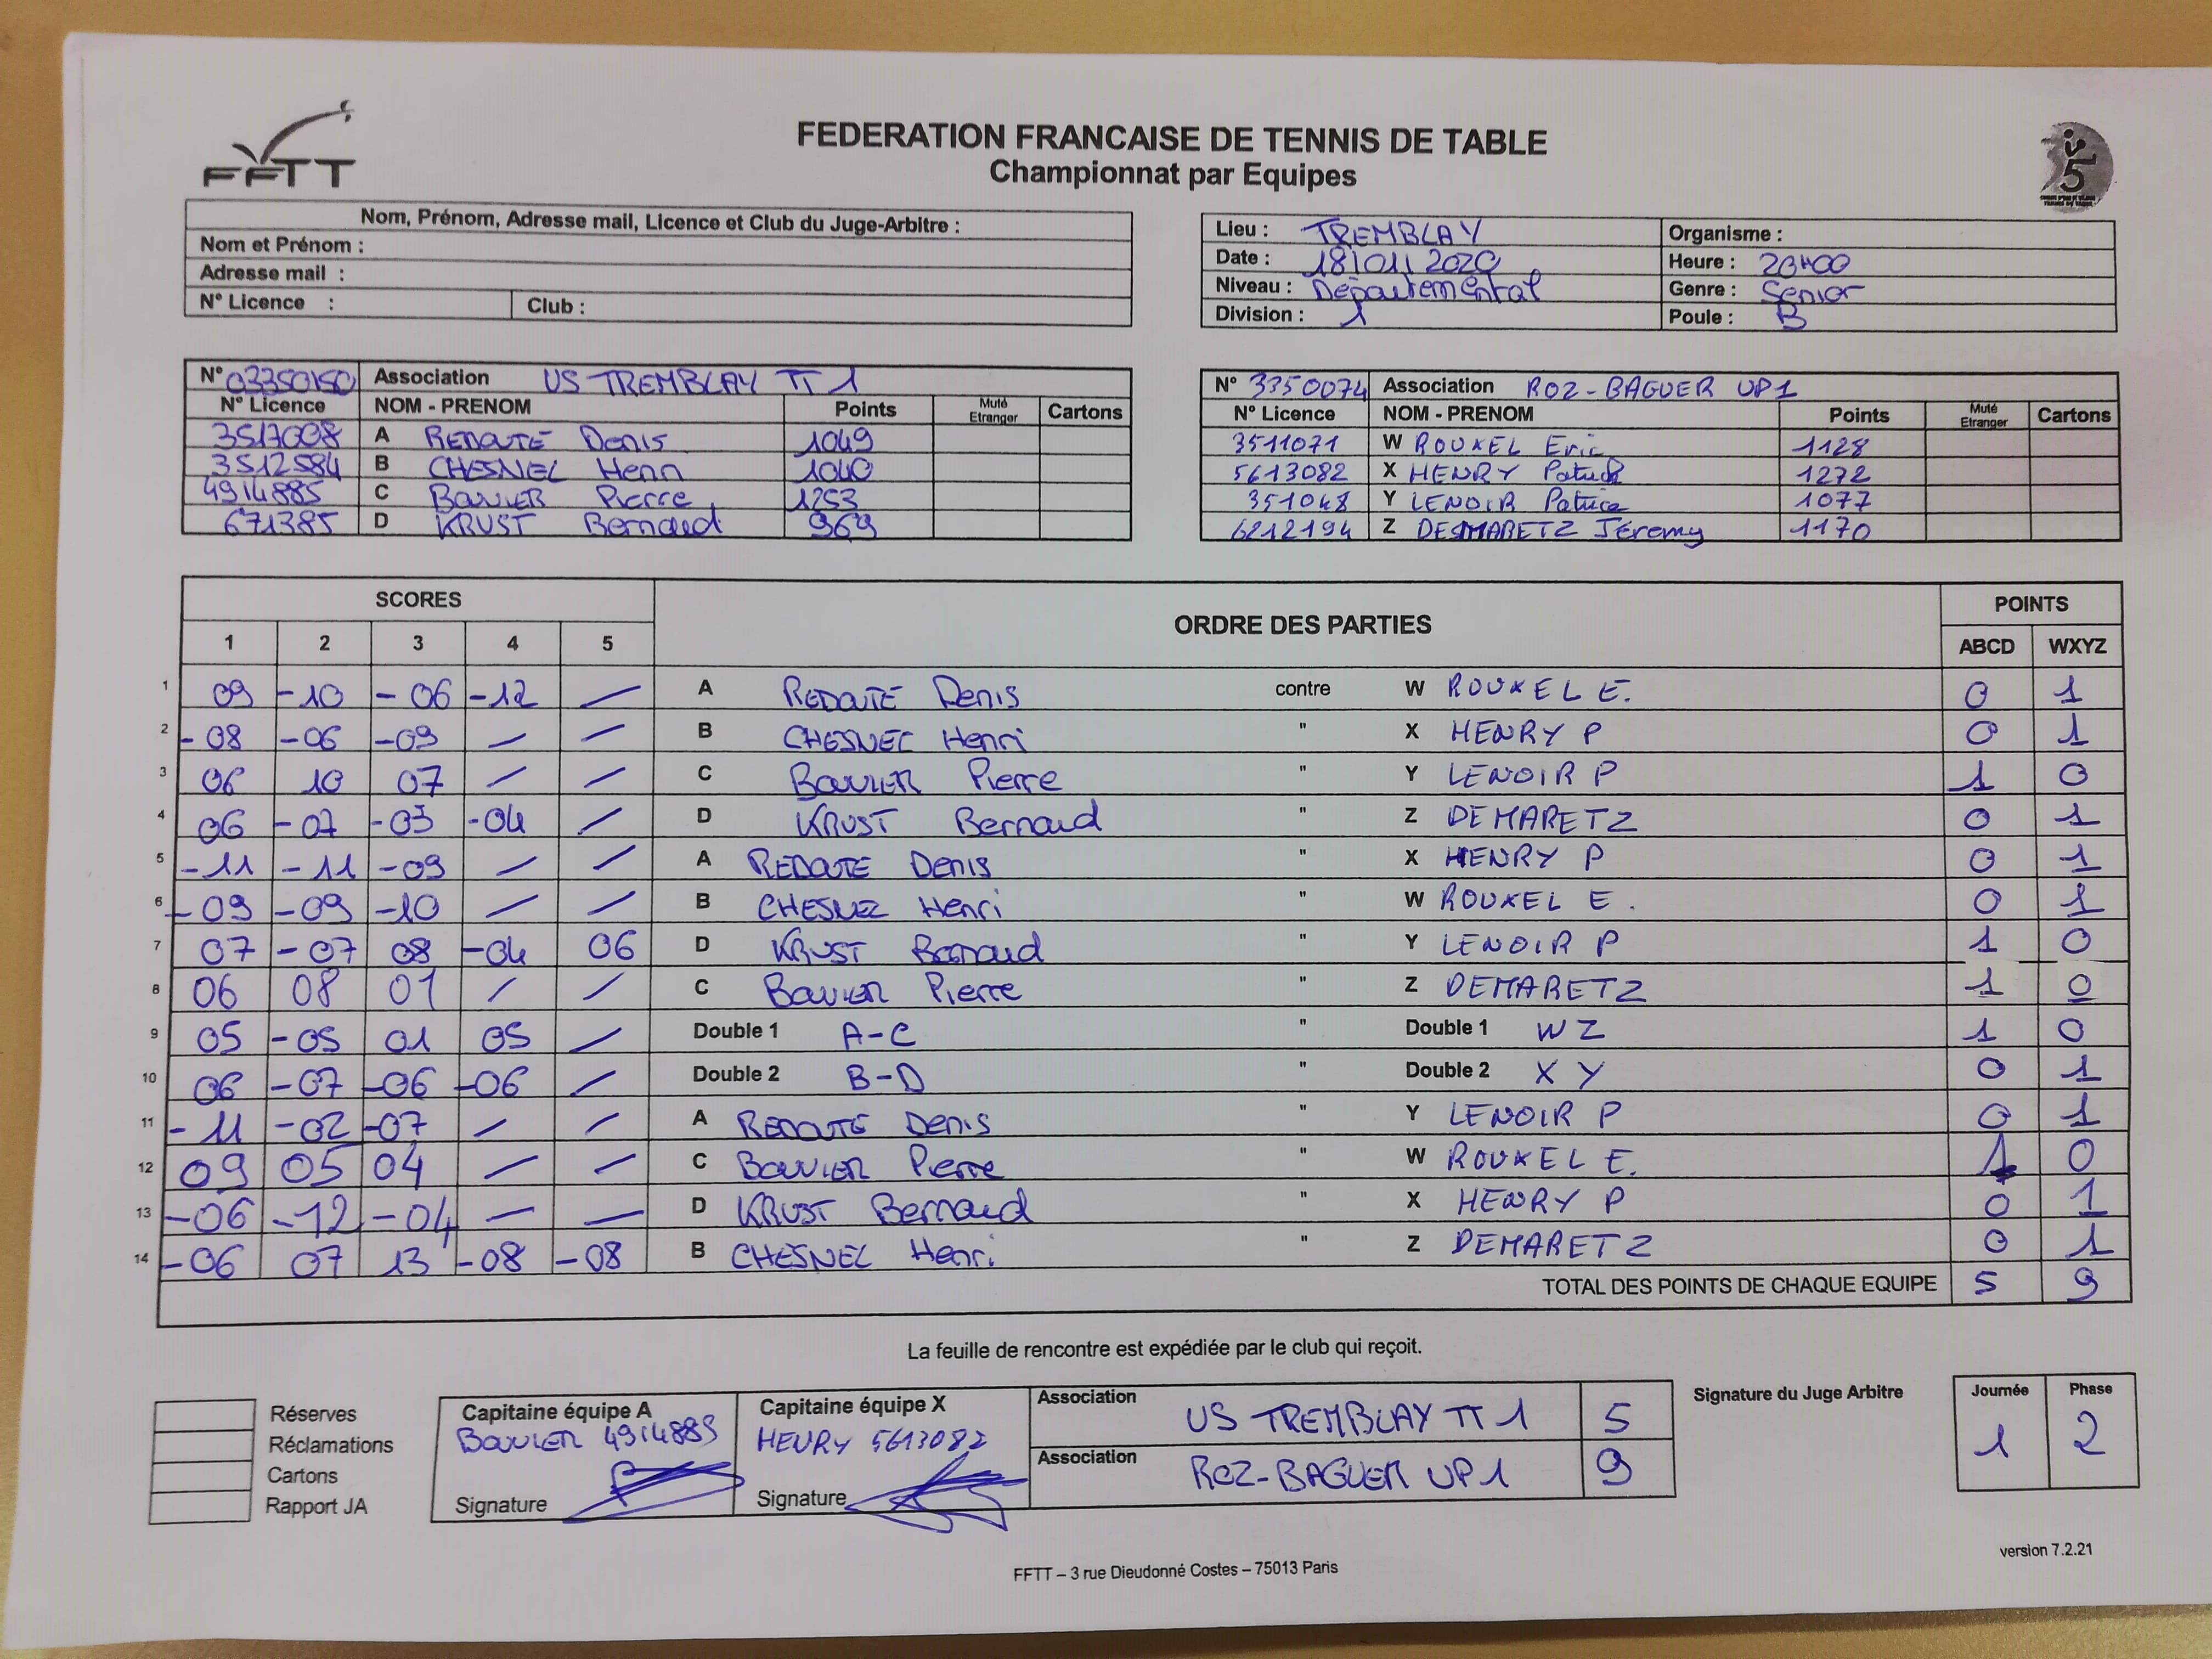 FFTT
FEDERATION FRANCAISE DE TENNIS DE TABLE
Championnat par Equipes
5
Nom, Prénom, Adresse mail, Licence et Club du Juge-Arbitre :
Nom et Prénom :
Adresse mail :
N° Licence : Club :
Lieu : TREMBLAY Organisme :
Date : 18/01/2020 Heure : 20H00
Niveau : Départemental Genre : Senior
Division : 1 Poule : B
N° 03350150 Association US TREMBLAY TT 1
N° Licence NOM - PRENOM Points Muté Etranger Cartons
3517008 A REDOUTE Denis 1049
3512584 B CHESNEL Henri 1040
4914885 C BOUVIER Pierre 1253
671385 D KRUST Bernard 969
N° 3350074 Association ROZ-BAGUER UP1
N° Licence NOM - PRENOM Points Muté Etranger Cartons
3511071 W ROUXEL Eric 1128
5613082 X HENRY Patrick 1272
351048 Y LENOIR Patrice 1077
6212194 Z DESMARETZ Jérémy 1170
SCORES ORDRE DES PARTIES POINTS
1 2 3 4 5 ABCD WXYZ
1 09 -10 -06 -12 / A REDOUTE Denis contre W ROUXEL E. 0 1
2 -08 -06 -09 / / B CHESNEL Henri " X HENRY P 0 1
3 06 10 07 / / C BOUVIER Pierre " Y LENOIR P 1 0
4 06 -07 -03 -04 / D KRUST Bernard " Z DEMARETZ 0 1
5 -11 -11 -09 / / A REDOUTE Denis " X HENRY P 0 1
6 -09 -09 -10 / / B CHESNEL Henri " W ROUXEL E. 0 1
7 07 -07 08 -04 06 D KRUST Bernard " Y LENOIR P 1 0
8 06 08 01 / / C BOUVIER Pierre " Z DEMARETZ 1 0
9 05 -05 01 05 / Double 1 A-C " Double 1 WZ 1 0
10 06 -07 -06 -06 / Double 2 B-D " Double 2 XY 0 1
11 -11 -02 -07 / / A REDOUTE Denis " Y LENOIR P 0 1
12 09 05 04 / / C BOUVIER Pierre " W ROUXEL E. 1 0
13 -06 -12 -04 / / D KRUST Bernard " X HENRY P 0 1
14 -06 07 13 -08 -08 B CHESNEL Henri " Z DEMARETZ 0 1
TOTAL DES POINTS DE CHAQUE EQUIPE 5 9
La feuille de rencontre est expédiée par le club qui reçoit.
Réserves
Réclamations
Cartons
Rapport JA
Capitaine équipe A
BOUVIER 4914885
Signature
Capitaine équipe X
HENRY 5613082
Signature
Association US TREMBLAY TT 1 5
Association ROZ-BAGUER UP1 9
Signature du Juge Arbitre
Journée Phase
1 2
version 7.2.21
FFTT – 3 rue Dieudonné Costes – 75013 Paris